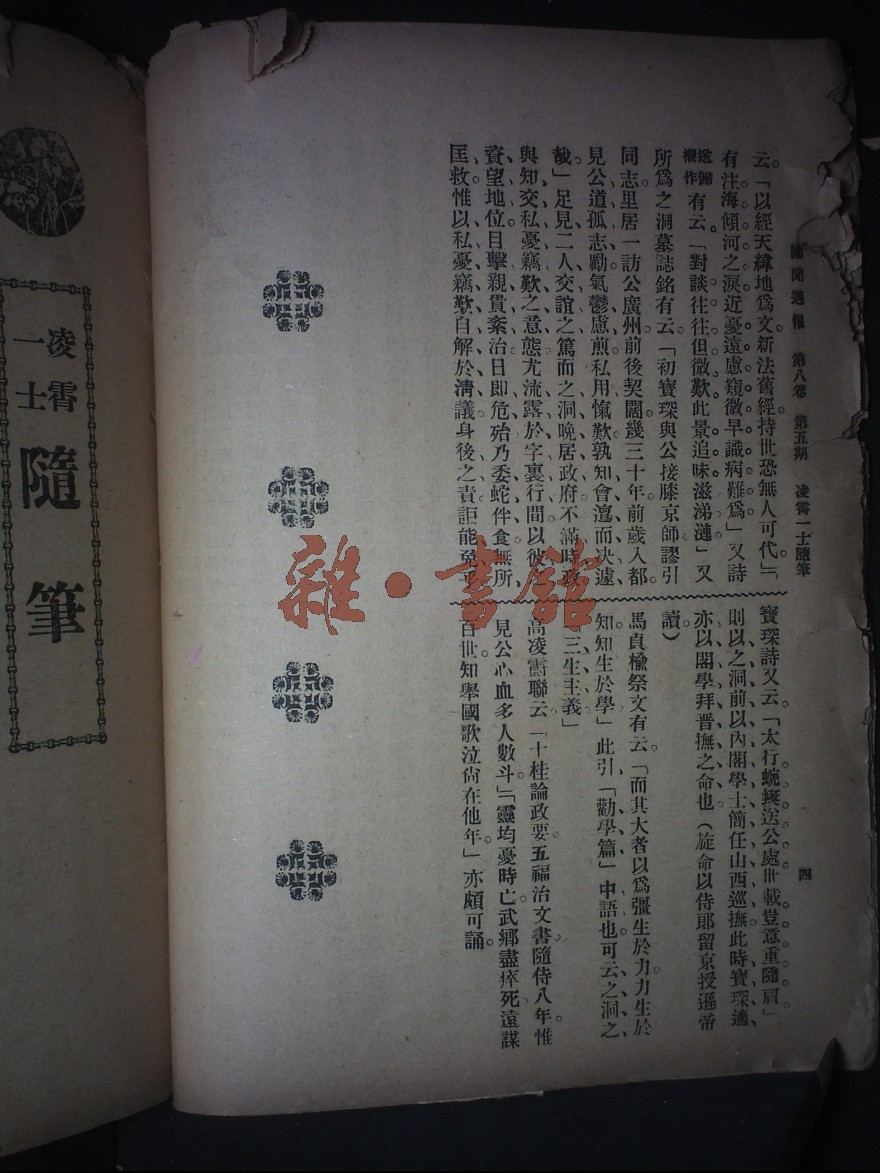 國聞週報 第八卷 第五期 凌霄一士隨筆
四
云。「以經天緯地爲文新法舊經持世恐無人可代」「
有注海傾河之淚近憂遠慮窺微早識病難爲」又詩
送歸櫬作有云。「對談往往但微歎此景追味滋涕漣」又
所爲之洞墓誌銘有云「初寳琛與公接膝京師謬引
同志里居一訪公廣州前後契闊幾三十年前歲入都
見公道孤志勵氣鬱慮煎私用愾歎孰知會面而決遽
哉」足見二人交誼之篤而之洞晚居政府不滿時政
與知交私憂竊歎之意態尤流露於字裏行間以彼
資望地位目擊親貴紊治日即危殆乃委蛇伴食無所
匡救惟以私憂竊歎自解於淸議身後之責詎能免乎
寳琛詩又云「太行蜿蜒送公處世載豈意重隨肩」
則以之洞前以內閣學士簡任山西巡撫此時寳琛適
亦以閣學拜晋撫之命也（旋命以侍郎留京授遜帝
讀）
馬貞楡祭文有云「而其大者以爲彊生於力力生於
知知生於學」此引「勸學篇」中語也可云之洞之
「三生主義」
高凌霨聯云「十桂論政要五福治文書隨侍八年惟
見公心血多人數斗」「靈均憂時亡武鄉盡瘁死遠謀
百世知舉國歌泣尙在他年」亦頗可誦
凌霄
一士
隨筆
雜·書館